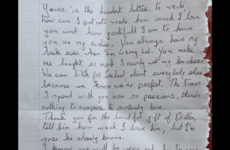 Yours is the hardest letter to write,
how can I put into words how much I love
you and how grateful I am to have
you as my sister. You always have my
back even when I'm wrong lol. You make
me laugh so much I nearly wet my knickers
We can talk for about everybody else
because we know we're perfect. The times
I spend with you are so precious, there's
nothing to compare to sisterly love.
Thank you for the beautiful gift of
tell him how much I love him, but I'm
sure he already knows.
I know you will be very